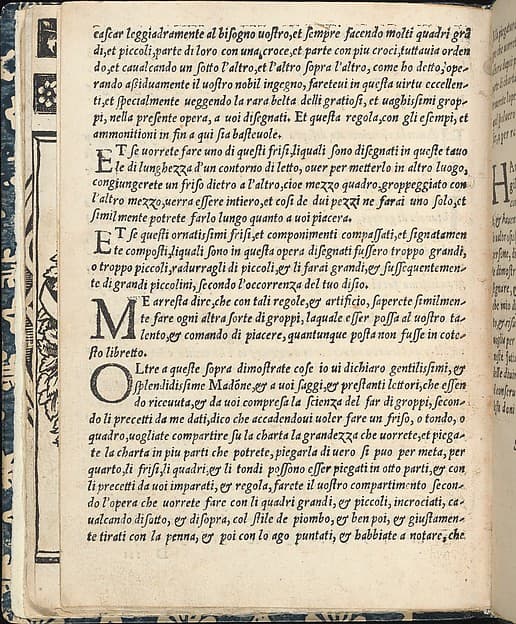 cascar leggiadramente al bisogno uostro,et sempre facendo molti quadri grā
di,et piccoli,parte di loro con una croce,et parte con piu croci,tuttauia orden
do,et caualcando un sotto l'altro,et l'altro sopra l'altro, come ho detto,'ope
rando aßiduamente il uostro nobil ingegno, faretui in questa uirtu eccellen
ti,et specialmente ueggendo la rara belta delli gratiosi, et uaghissimi grop
pi, nella presente opera, a uoi disegnati. Et questa regola,con gli esempi, et
ammonitioni in fin a qui sia basteuole.
ET se uorrete fare uno di questi frisi,liquali sono disegnati in queste tauo
le di lunghezza d'un contorno di letto, ouer per metterlo in altro luogo,
congiungerete un friso dietro a l'altro,cioe mezzo quadro,groppeggiato con
l'altro mezzo,uerra essere intiero,et cosi de dui pezzi ne farai uno solo,et
similmente potrete farlo lungo quanto a uoi piacera.
ET se questi ornatissimi frisi,et componimenti compassati,et signatamen
te composti,liquali sono in questa opera disegnati fussero troppo grandi,
o troppo piccoli,radurragli di piccoli,& li farai grandi,& sussequentemen-
te di grandi piccolini, secondo l'occorrenza del tuo disso.
ME arresta dire,che con tali regole,& artificio, saperete similmen-
te fare ogni altra sorte di groppi, laquale esser possa al uostro ta-
lento,& comando di piacere, quantunque posta non fusse in cote-
sto libretto.
OLtre a queste sopra dimostrate cose io ui dichiaro gentilissimi, &
splendidissime Madōne,& a uoi saggi,& prestanti lettori,che essen
do riceuuta,& da uoi compresa la scienza del far di groppi, secon-
do li precetti da me dati,dico che accadendoui uoler fare un friso, o tondo, o
quadro,uogliate compartire su la charta la grandezza che uorrete,et piega-
te la charta in piu parti che potrete, piegarla di uero si puo per meta, per
quarto,li frisi,li quadri,& li tondi possono esser piegati in otto parti,& con
li precetti da uoi imparati, & regola, farete il uostro compartimēto secon-
do l'opera che uorrete fare con li quadri grandi, & piccoli, incrociati, ca-
ualcando disotto, & disopra, col stile de piombo, & ben poi, & giustamen-
te tirati con la penna, & poi con lo ago puntati, & habbiate a notare,che